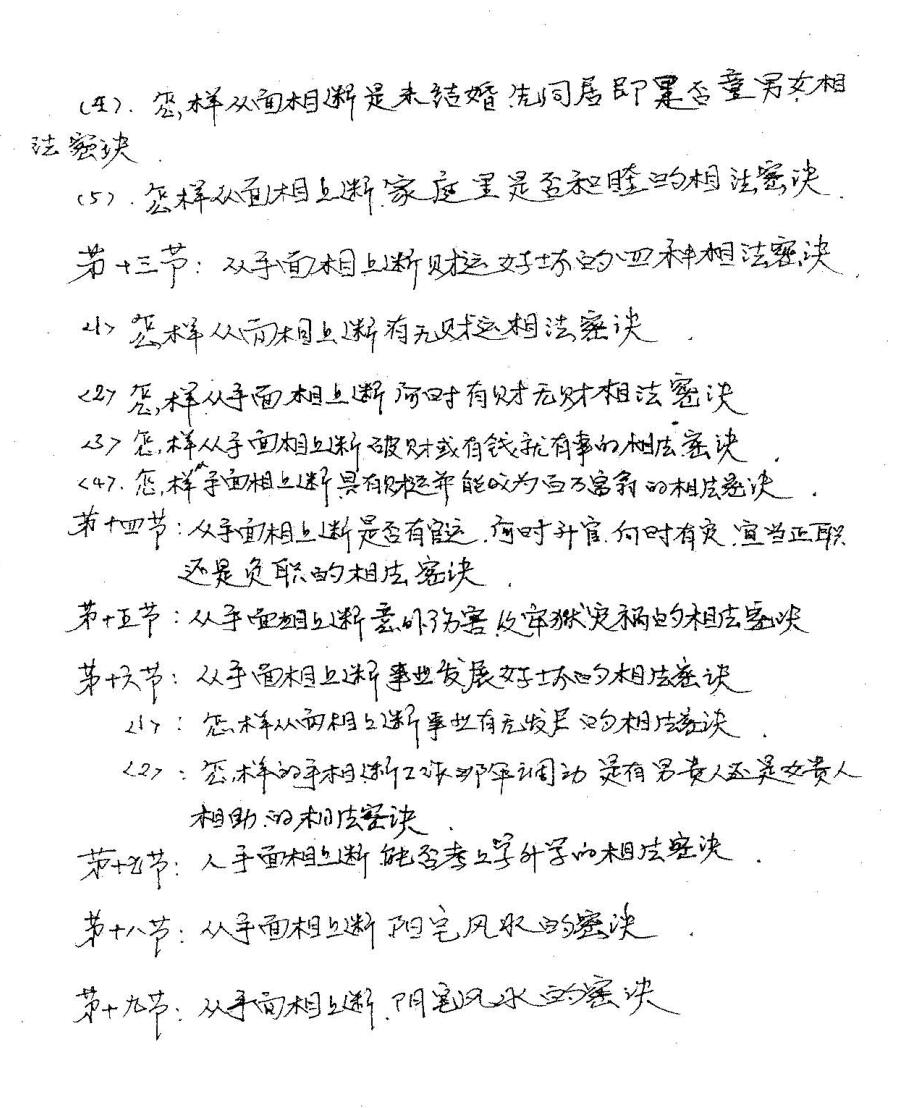 (4). 怎样从面相断是未结婚先同居即是否童男女相
法密诀.
(5). 怎样从面相上断家庭里是否和睦的相法密诀.
第十三节: 从手面相上断财运好坏的四种相法密诀.
<1> 怎样从面相上断有无财运相法密诀.
<2> 怎样从手面相上断何时有财无财相法密诀
<3> 怎样从手面相上断破财或有钱就有事的相法密诀.
<4>. 怎样从手面相上断具有财运并能成为百万富翁的相法密诀.
第十四节: 从手面相上断是否有官运.何时升官.何时有灾.宜当正职
还是负职的相法密诀.
第十五节: 从手面相上断意外伤害及牢狱灾祸的相法密诀
第十六节: 从手面相上断事业发展好坏的相法密诀
<1>: 怎样从面相上断事业有无发展的相法密诀.
<2>: 怎样的手相断工作那年调动是有男贵人还是女贵人
相助的相法密诀.
第十七节: 人手面相上断能否考上学升学的相法密诀.
第十八节: 从手面相上断阳宅风水的密诀.
第十九节: 从手面相上断.阴宅风水的密诀